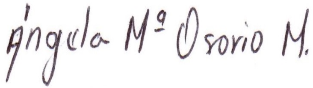 Ángela Mª Osorio M.